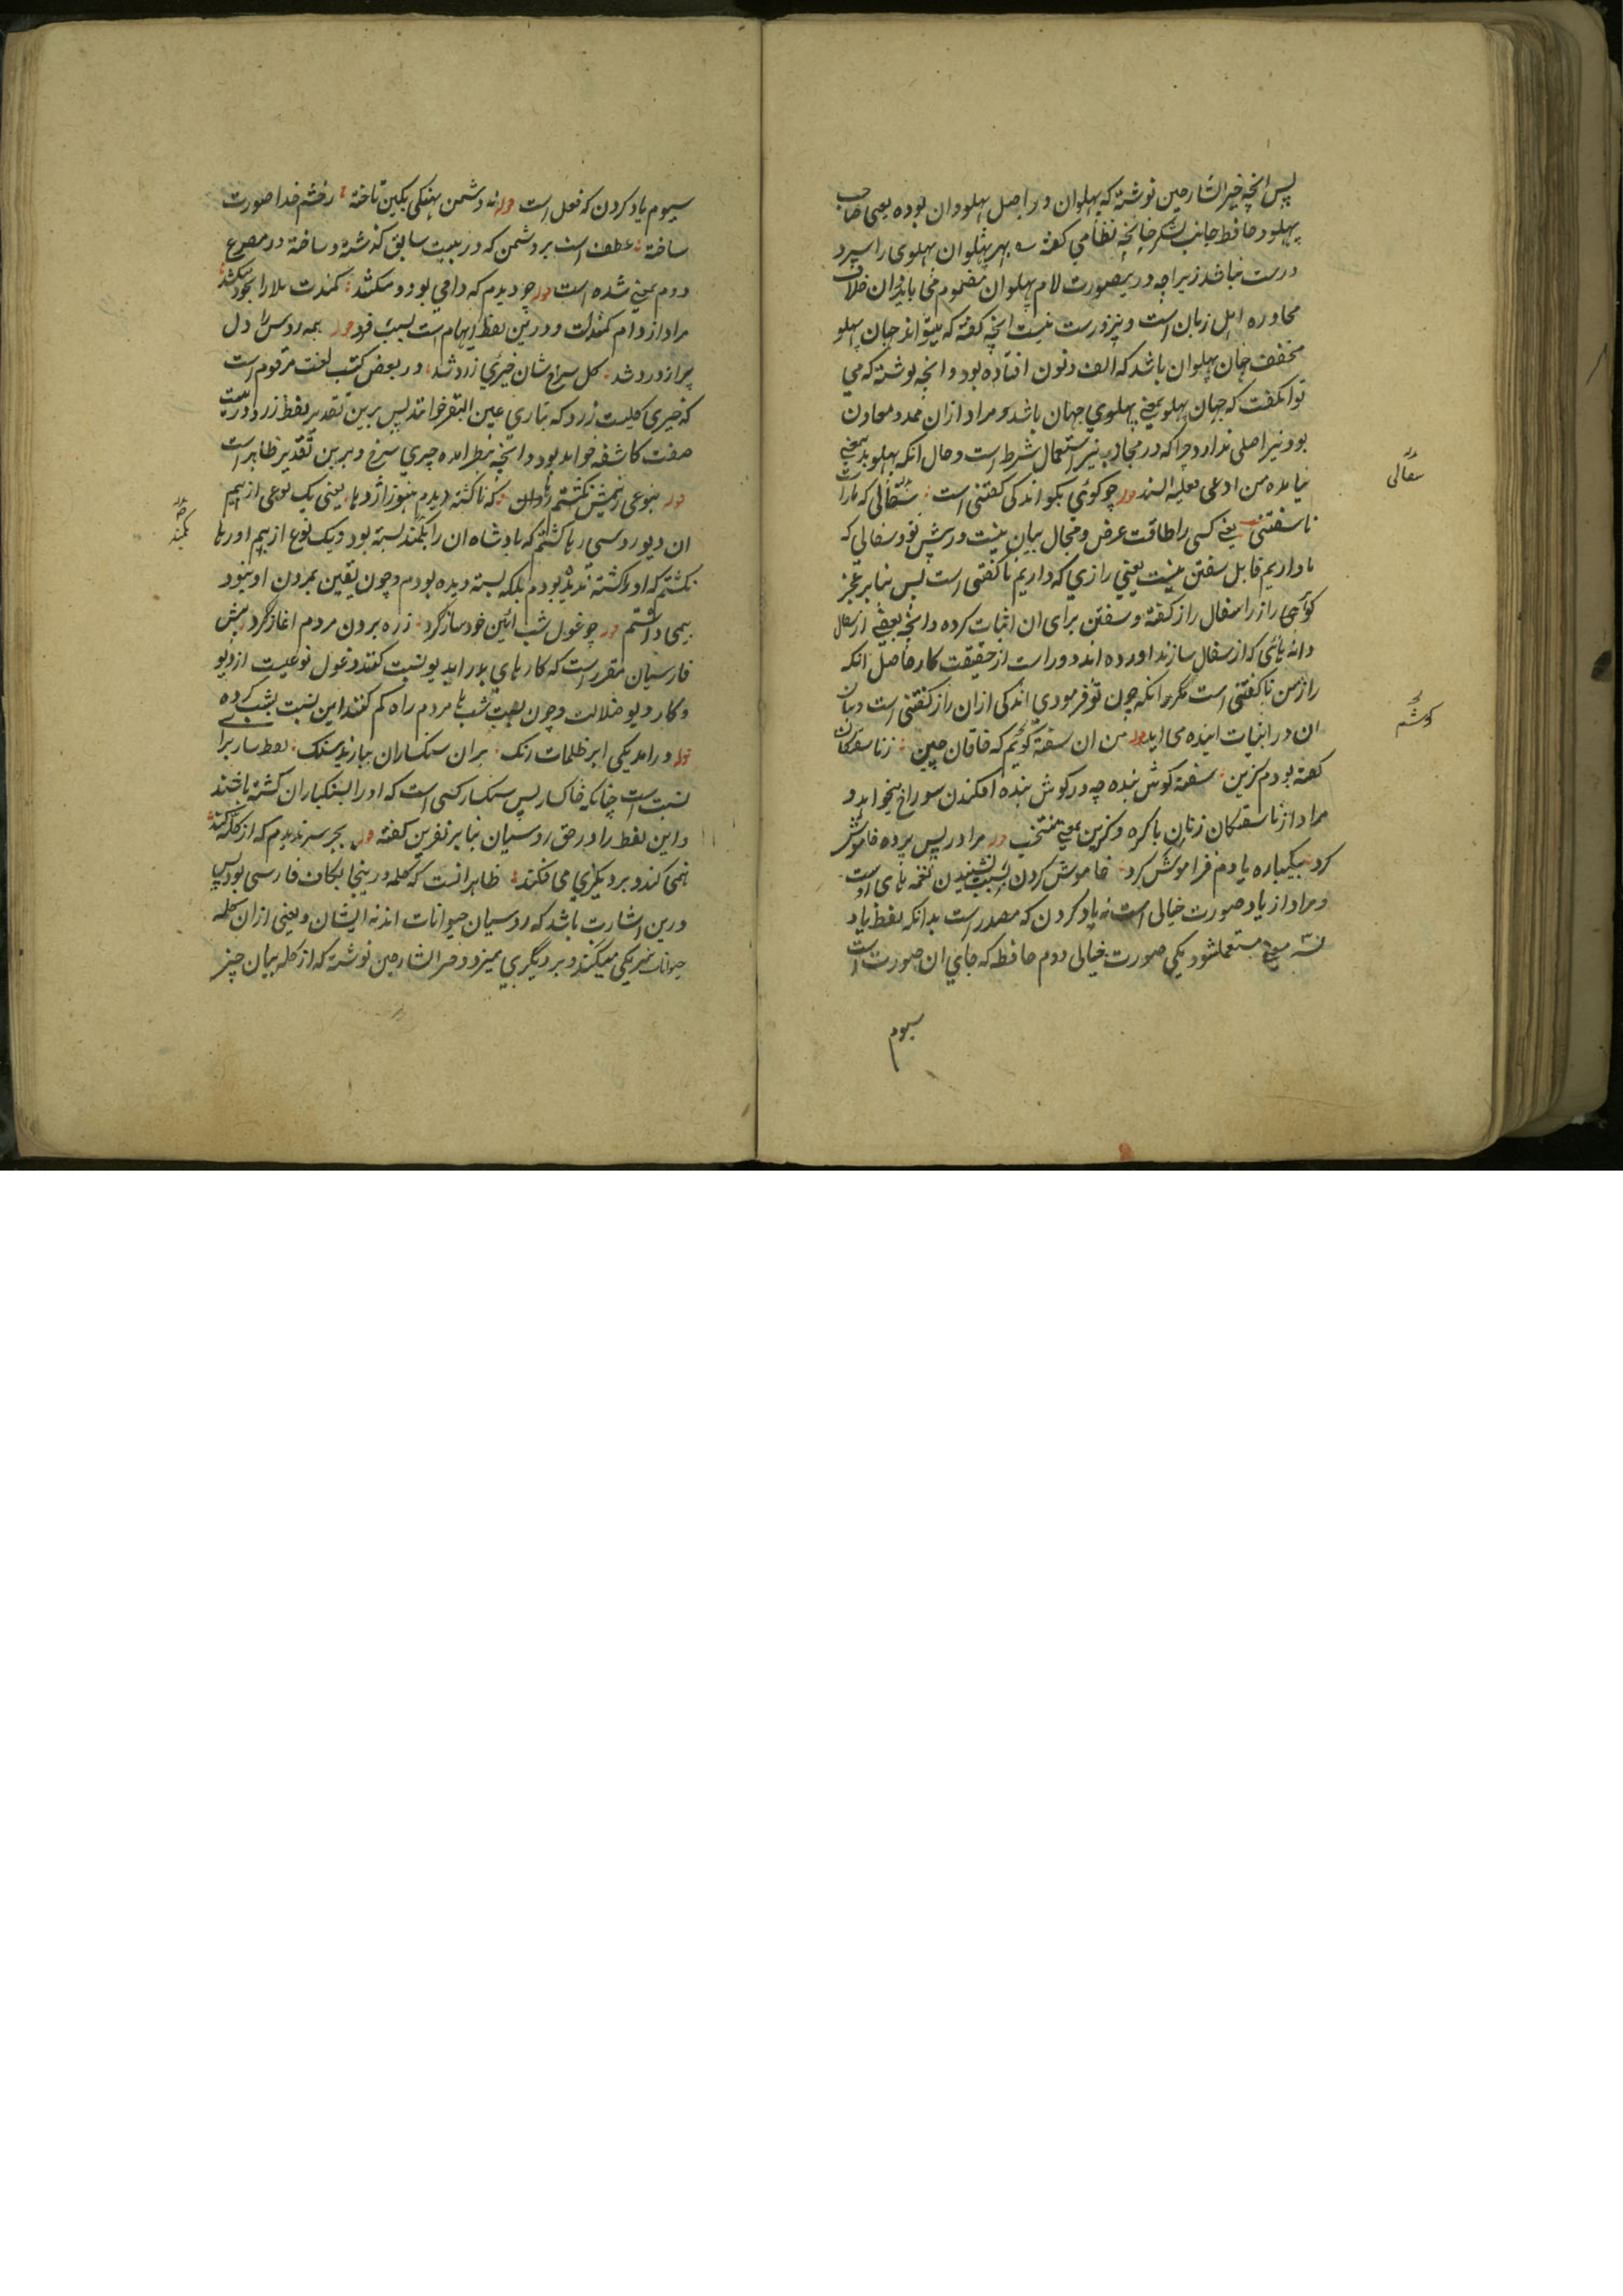 پس انچه خیر الشارحین نوشته که پهلوان در اصل پهلودان بوده یعنی صاحب
پهلو و حافظ جانب لشکر چنانچه نظامی گفته بهر پهلوان پهلوی را سپرد
درست نباشد زیراچه درینصورت لام پهلوان مضموم می باید و ان خلاف
محاوره اهل زبان است و نیز درست نیست انچه گفته که میتواند جهان پهلو
مخفف جهان پهلوان باشد که الف و نون افتاده بود و انچه نوشته که می
توانگفت که جهان پهلو بمعنی پهلوی جهان باشد و مراد ازان ممد و معاون
بود نیز اصلی ندارد چرا که در مجاز نیز استعمال شرط است و حال انکه پهلو بدینمعنی
نیامده من ادعی فعلیه السند قوله چو گوئی بگو اندکی گفتنی است سفالی که ما راست
ناسفتنی یعنی کسی را طاقت عرض و مجال بیان نیست در پیش تو و سفالی که
ما داریم قابل سفتن نیست یعنی رازی که داریم ناگفتنی است پس بنابر عجز
گوئی راز را سفال راز گفته و سفتن برای ان اثبات کرده و انچه بعضی از سفال
دانه هائی که از سفال سازند اورده اند دور است از حقیقت کار حاصل انکه
راز من ناگفتنی است مگر انکه چون تو فرمودی اندکی ازان راز گفتنی است و بیان
ان در ابیات اینده می اید قوله من ان سفته گوشم که خاقان چین ز ناسفتگان
گفته بودم گزین سفته گوش بنده چه در گوش بنده افکندن سوراخ میخواهد و
مراد از ناسفتگان زنان باکره و گزین بمعنی منتخب قوله مرا در پس پرده خاموش
کرد بیکباره یادم فراموش کرد خاموش کردن بسبب نشنیدن نغمه های اوست
و مراد از یاد صورت خیالی است نه یاد کردن که مصدر است بدانکه لفظ یاد
بسه معنی مستعملشود یکی صورت خیالی دوم حافظه که جای ان صورت است
سیوم
سفالی
گوشم
سیوم یاد کردن که فعل است قوله نه دشمن پهنکی بکین تاخته ز خشم خدا صورت
ساخته عطف است بر دشمن که در بیت سابق گذشته و ساخته در مصرع
دوم بمعنی شده است قوله چو دیدم که دامی بود و میکشد کمندت بلا را بخود میکشد
مراد از دام کمند است و درین لفظ ایهام است بسبب قوله همه روس را دل
پر از درد شد گل سرخ شان خیری زرد شد در بعض کتب لغت مرقوم است
که خیری گلیست زرد که بتازی عین البقر خوانند پس برین تقدیر لفظ زرد درین بیت
صفت کاشفه خواهد بود و انچه بنظر امده چیری سرخ و برین تقدیر ظاهر است
قوله بنوعی ز بیمش نگشتم رها که ناکشته دیدم هنوز اژدها یعنی یک نوعی از بیم
ان دیو روسی رها گشتم که بادشاه ان را بکمند بسته بود و یک نوع از بیم او رها
نگشتم که او را کشته ندیده بودم بلکه بسته دیده بودم و چون یقین بمردن او نبود
بیمی داشتم قوله چو غول شب ائین خود ساز کرد ز ره بردن مردم اغاز کرد پیش
فارسیان مقرر است که کارهای بد را بدیو نسبت کنند و غول نوعیست از دیو
و کار دیو ضلالت و چون بسبب شب ها مردم راه گم کنند این نسبت بشب کرده
قوله درامد یکی ابر ظلمات رنگ بران سنگساران ببارید سنگ لفظ سار برا
نسبت است چنانکه خاکسار پس سنگسار کسی است که او را بسنگباران کشته باشند
و این لفظ را در حق روسیان بنابر نفرین گفته قوله بجز سر ندیدم که از کله کند
همی کند و بر دیگری می فکند ظاهر انست که کله درینجا بکاف فارسی بود پس
درین اشارت باشد که روسیان حیوانات اند نه ایشان و یعنی ازان گله
حیوانات سر یکی میکند و بر دیگری میزد و خیر الشارحین نوشته که از کله بیان چیز
بکمند